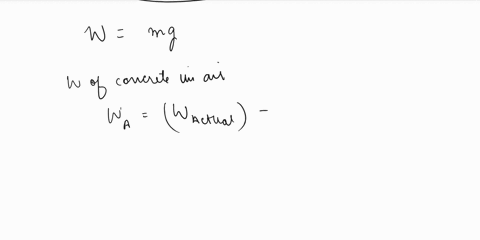 W = mg
W of concrete in air
W_A = (W_Actual) -